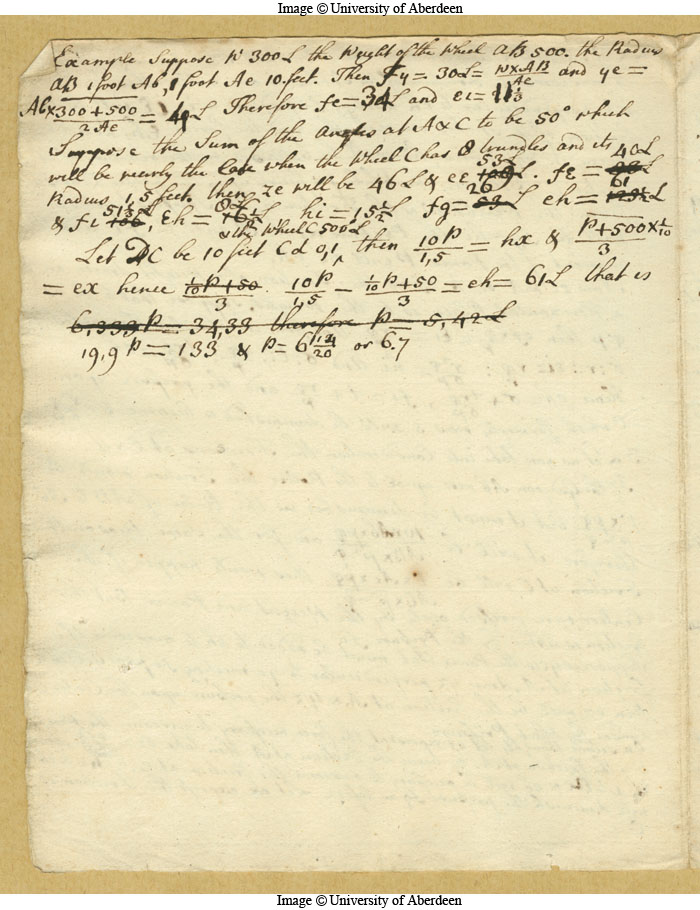 Image © University of Aberdeen
Example Suppose W 300 L the Weight of the Wheel AB 500. the Radius
AB 1 foot Ab, 1 foot Ae 10 feet. Then fy = 30L = W×AB/Ae and ye =
Ab×300+500/2Ae = 4L Therefore fe = 34L and ei = 11 1/3
Suppose the Sum of the Angles at A & C to be 50° which
will be nearly the Case when the Wheel C has 8 trundles and its
Radius 1,5 feet. then ze will be 46L & eε 53L. fε = 40L
& fi 51 L, εh = 8L hi = 15 1/2 fg = 26 L eh = 61 L
& the Wheel C 500L
Let DC be 10 feet Cd 0,1, then 10P/1,5 = hx & P+500×1/10/3
= ex hence 1/10P+50/3. 10P/1,5 − 1/10P+50/3 = eh = 61L that is
6,333P = 34,33 therefore P = 5,42L
19,9 P = 133 & P = 6 14/20 or 6.7
Image © University of Aberdeen